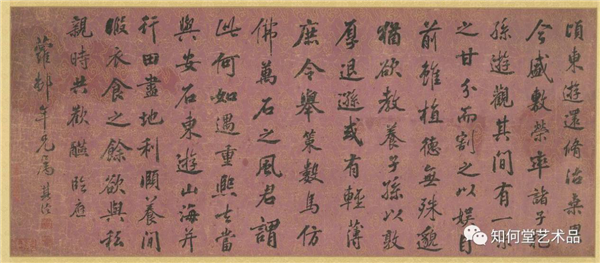 頃東遊還脩治桑果
今盛敷榮率諸子抱
孫遊觀其間有一味
之甘分而割之以娛目
前雖植德無殊邈
猶欲教養子孫以敦
厚退遜或有輕薄
庶令舉策數馬仿
佛萬石之風君謂
此何如遇重熙去當
與安石東遊山海并
行田盡地利頤養閒
暇衣食之餘欲與私
親時共歡讌
蘿邨年兄屬
知何堂艺术品